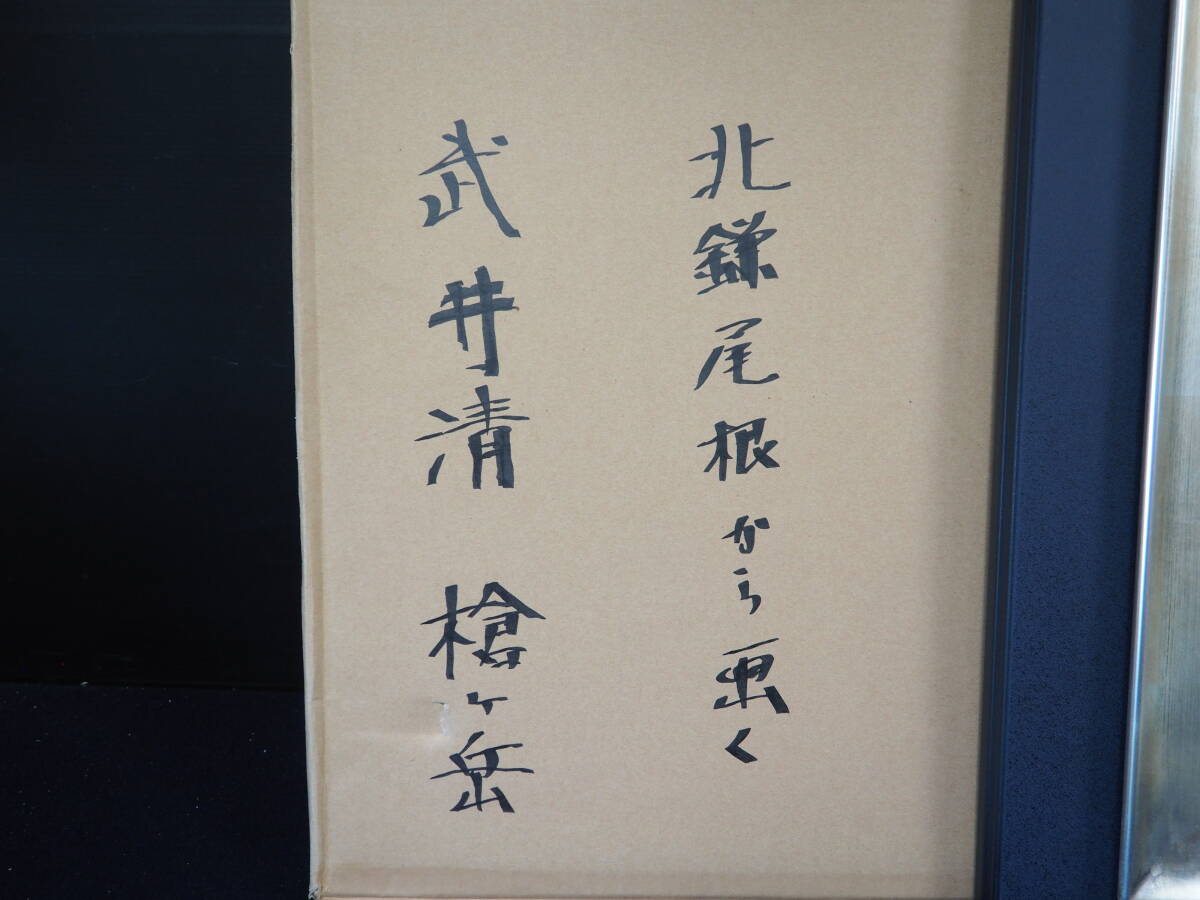 北鎌尾根から画く
武井清 槍ヶ岳